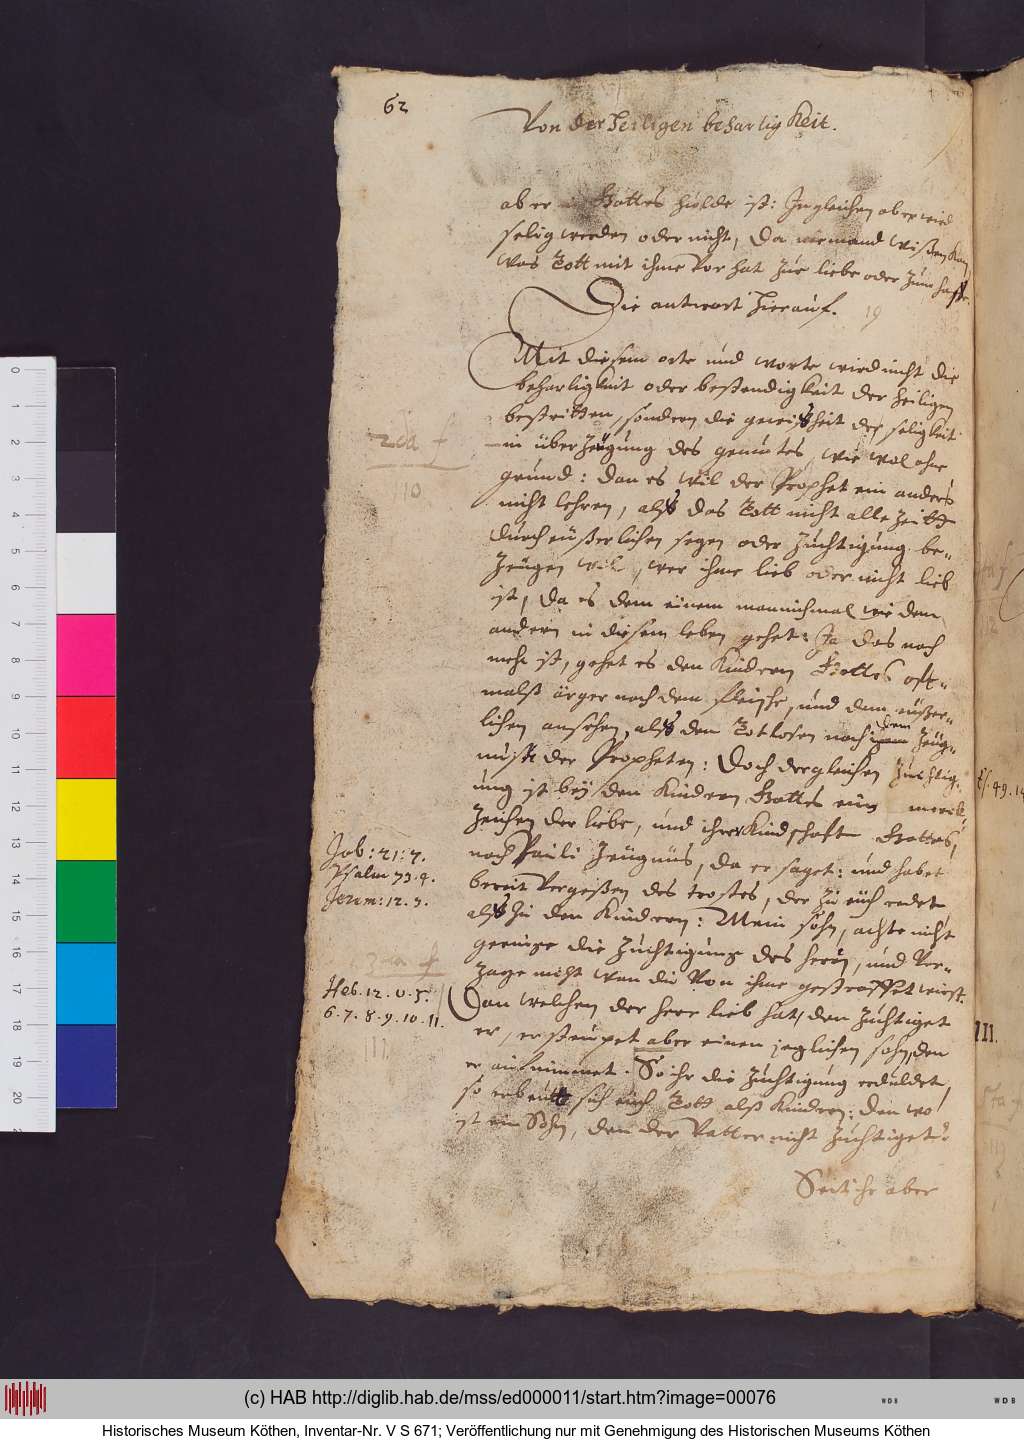 62
Von der Heiligen beharligkeit.
aber in Gottes hulde ist: Ingleichen ob er wird
selig werden oder nicht, da niemand wißen kan
was Gott mit ihme vor hat zur liebe oder zum haße.
Die antwort hierauf.
19
Mit diesem orte und worte wird nicht die
beharligkeit oder bestendigkeit der heiligen
bestritten, sondern die gewißheit der seligkeit
in überzeügung des gemütes, wie wol ohne
grund: dan es wil der Prophet ein anders
nicht lehren, alß das Gott nicht alle zeitt
durch eüßerlichen segen oder züchtigung be-
zeügen wil, wer ihme lieb oder nicht lieb
ist, da es dem einem mannichmal wie dem
andern in diesem leben gehet: Ja das noch
mehr ist, gehet es den Kindern Gottes oft-
malß ärger nach dem fleische, und dem eüßer-
lichen ansehen, alß den Gotlosen nach dem zeüg-
nuß der Propheten: Doch dergleichen züchtig-
ung ist beÿ den Kindern Gottes ein merck-
zeichen der liebe, und ihrer Kindschaft Gottes,
nach Pauli Zeügnüs, da er saget: und habet
bereit vergeßen des trostes, der zu eüch redet
alß zu den Kindern: Mein sohn, achte nicht
geringe die züchtigung des herrn, und ver-
zage nicht wan du von ihme gestraffet wirst.
Dan welchen der herr lieb hat, den züchtiget
er, er steüpet aber einen jeglichen sohn, den
er aufnimmet. So ihr die züchtigung erduldet,
so erbeütt sich eüch Gott alß Kindern: den wo
ist ein Sohn, den der Vatter nicht züchtiget?
Seit ihr aber
110
Job: 21: 7.
Psalm 73. 4.
Jerem: 12. 1.
Heb. 12. v. 5.
6. 7. 8. 9. 10. 11.
111
Es. 49. 14
III.
0 1 2 3 4 5 6 7 8 9 10 11 12 13 14 15 16 17 18 19 20
(c) HAB http://diglib.hab.de/mss/ed000011/start.htm?image=00076
WDB
WDB
Historisches Museum Köthen, Inventar-Nr. V S 671; Veröffentlichung nur mit Genehmigung des Historischen Museums Köthen